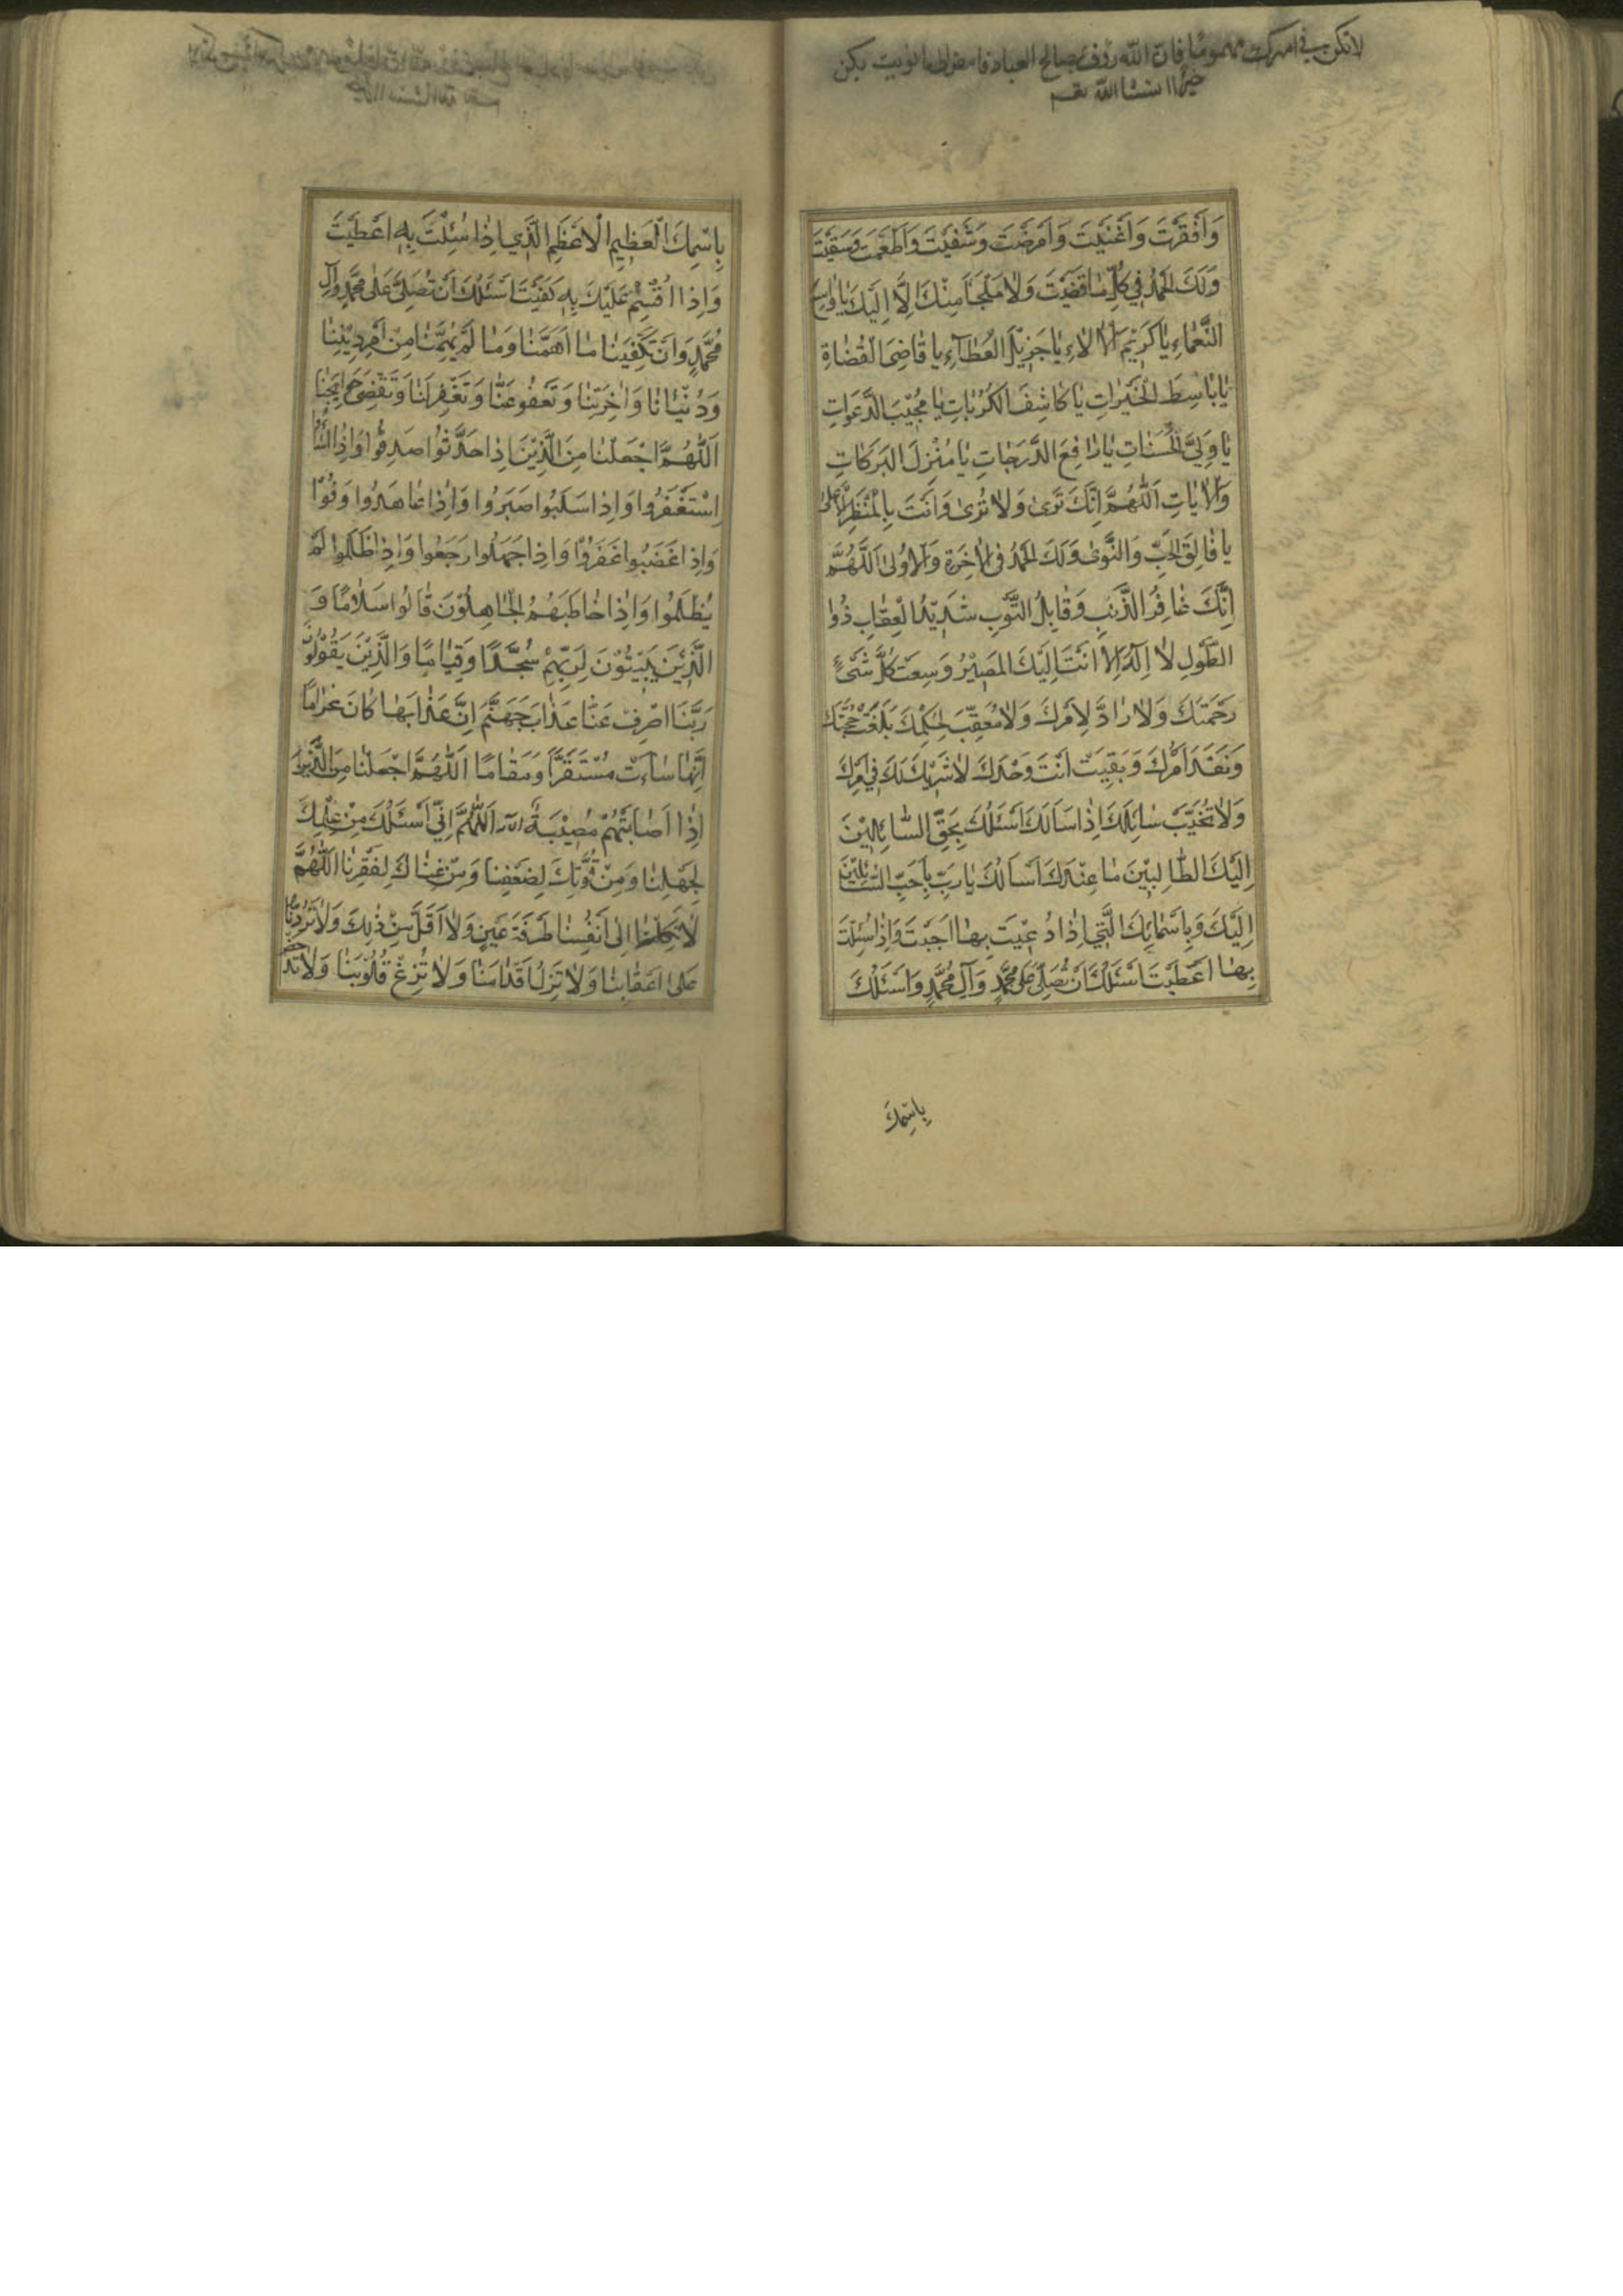 لا تكون في امرك مهموما فان الله رؤف بصالح العباد فامض لما نويت يكن
خيرا انشاالله
وَاَفْقَرْتَ وَاَغْنَيْتَ وَاَمْرَضْتَ وَشَفَيْتَ وَاَطْعَمْتَ وَسَقَيْتَ
وَلَكَ الْحَمْدُ في كُلِّ مٰا قَضَيْتَ وَلاٰ مَلْجَأَ مِنْكَ اِلَّا اِلَيْكَ يٰا وٰاسِعَ
النَّعْمٰاءِ يٰا كَرٖيمَ الْاٰلاٰءِ يٰا جَزٖيلَ الْعَطٰآءِ يٰا قٰاضِيَ الْقُضٰاةِ
يٰا بٰاسِطَ الْخَيْرٰاتِ يٰا كٰاشِفَ الْكُرُبٰاتِ يٰا مُجٖيبَ الدَّعَوٰاتِ
يٰا وَلِيَّ الْحَسَنٰاتِ يٰا رٰافِعَ الدَّرَجٰاتِ يٰا مُنْزِلَ الْبَرَكٰاتِ
وَالْاٰيٰاتِ اَللّٰهُمَّ اِنَّكَ تَرىٰ وَلاٰ تُرىٰ وَاَنْتَ بِالْمَنْظَرِ الْاَعْلىٰ
يٰا فٰالِقَ الْحَبِّ وَالنَّوىٰ وَلَكَ الْحَمْدُ فِى الْاٰخِرَةِ وَالْاُولىٰ اَللّٰهُمَّ
اِنَّكَ غٰافِرُ الذَّنْبِ وَقٰابِلُ التَّوْبِ شَدٖيدُ الْعِقٰابِ ذُوا
الطَّوْلِ لاٰ اِلٰهَ اِلاّٰ اَنْتَ اِلَيْكَ الْمَصٖيرُ وَسِعْتَ كُلَّ شَىْءٍ
رَحْمَتُكَ وَلاٰ رٰادَّ لِاَمْرِكَ وَلاٰ مُعَقِّبَ لِحُكْمِكَ بَلَغَتْ حُجَّتُكَ
وَنَفَذَ اَمْرُكَ وَبَقِيتَ اَنْتَ وَحْدَكَ لاٰ شَرٖيكَ لَكَ فٖي اَمْرِكَ
وَلاٰ تُخَيِّبُ سٰائِلَكَ اِذٰا سَاَلَكَ اَسْئَلُكَ بِحَقِّ السّٰائِلٖينَ
اِلَيْكَ الطّٰالِبٖينَ مٰا عِنْدَكَ اَسْاَلُكَ يٰا رَبِّ بِاَحَبِّ السّٰائِلٖينَ
اِلَيْكَ وَبِاَسْمٰائِكَ الَّتٖي اِذٰا دُعٖيتَ بِهٰا اَجَبْتَ وَاِذٰا سُئِلْتَ
بِهٰا اَعْطَيْتَ اَسْئَلُكَ اَنْ تُصَلِّىَ عَلىٰ مُحَمَّدٍ وَآلِ مُحَمَّدٍ وَاَسْئَلُكَ
بِاسْمِكَ
بِاسْمِكَ الْعَظٖيمِ الْاَعْظَمِ الَّذٖي اِذٰا سُئِلْتَ بِهٖ اَعْطَيْتَ
وَاِذٰا اُقْسِمَ عَلَيْكَ بِهٖ كَفَيْتَ اَسْئَلُكَ اَنْ تُصَلِّىَ عَلىٰ مُحَمَّدٍ وَآلِ
مُحَمَّدٍ وَاَنْ تَكْفِيَنٰا مٰا اَهَمَّنٰا وَمٰا لَمْ يُهِمَّنٰا مِنْ اَمْرِ دٖينِنٰا
وَدُنْيٰانٰا وَاٰخِرَتِنٰا وَتَعْفُوَ عَنّٰا وَتَغْفِرَ لَنٰا وَتَقْضِىَ حَوٰايِجَنٰا
اَللّٰهُمَّ اجْعَلْنٰا مِنَ الَّذٖينَ اِذٰا حَدَّثُوا صَدَقُوا وَاِذٰا اَسٰاؤُا
اِسْتَغْفَرُوا وَاِذٰا سُلِبُوا صَبَرُوا وَاِذٰا عٰاهَدُوا وَفَوْا
وَاِذٰا غَضِبُوا غَفَرُوا وَاِذٰا جَهِلُوا رَجَعُوا وَاِذٰا ظُلِمُوا لَمْ
يَظْلِمُوا وَاِذٰا خٰاطَبَهُمُ الْجٰاهِلُونَ قٰالُوا سَلاٰمًا وَ
الَّذٖينَ يَبٖيتُونَ لِرَبِّهِمْ سُجَّدًا وَقِيٰامًا وَالَّذٖينَ يَقُولُونَ
رَبَّنَا اصْرِفْ عَنّٰا عَذٰابَ جَهَنَّمَ اِنَّ عَذٰابَهٰا كٰانَ غَرٰامًا
اِنَّهٰا سٰاءَتْ مُسْتَقَرًّا وَمُقٰامًا اَللّٰهُمَّ اجْعَلْنٰا مِنَ الَّذٖينَ
اِذٰا اَصٰابَتْهُمْ مُصٖيبَةٌ اَللّٰهُمَّ اِنّٖي اَسْئَلُكَ مِنْ عِلْمِكَ
لِجَهْلِنٰا وَمِنْ قُوَّتِكَ لِضَعْفِنٰا وَمِنْ غِنٰاكَ لِفَقْرِنٰا اَللّٰهُمَّ
لاٰ تَكِلْنٰا اِلىٰ اَنْفُسِنٰا طَرْفَةَ عَيْنٍ وَلاٰ اَقَلَّ مِنْ ذٰلِكَ وَلاٰ تَرُدَّنٰا
عَلىٰ اَعْقٰابِنٰا وَلاٰ تُزِلَّ اَقْدٰامَنٰا وَلاٰ تُزِغْ قُلُوبَنٰا وَلاٰ تُدْحِضْ